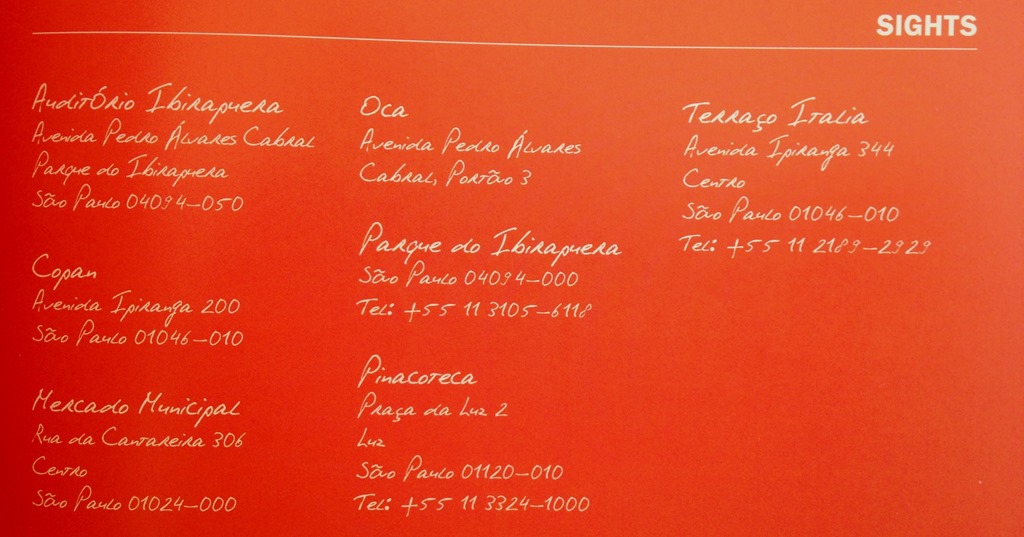 SIGHTS
AuditÓrio Ibirapuera
Avenida Pedro Álvares Cabral
Parque do Ibirapuera
São Paulo 04094-050
Copan
Avenida Ipiranga 200
São Paulo 01046-010
Mercado Municipal
Rua da Cantareira 306
Centro
São Paulo 01024-000
Oca
Avenida Pedro Álvares
Cabral, Portão 3
Parque do Ibirapuera
São Paulo 04094-000
Tel: +55 11 3105-6118
Pinacoteca
Praça da Luz 2
Luz
São Paulo 01120-010
Tel: +55 11 3324-1000
Terraço Italia
Avenida Ipiranga 344
Centro
São Paulo 01046-010
Tel: +55 11 2189-2929